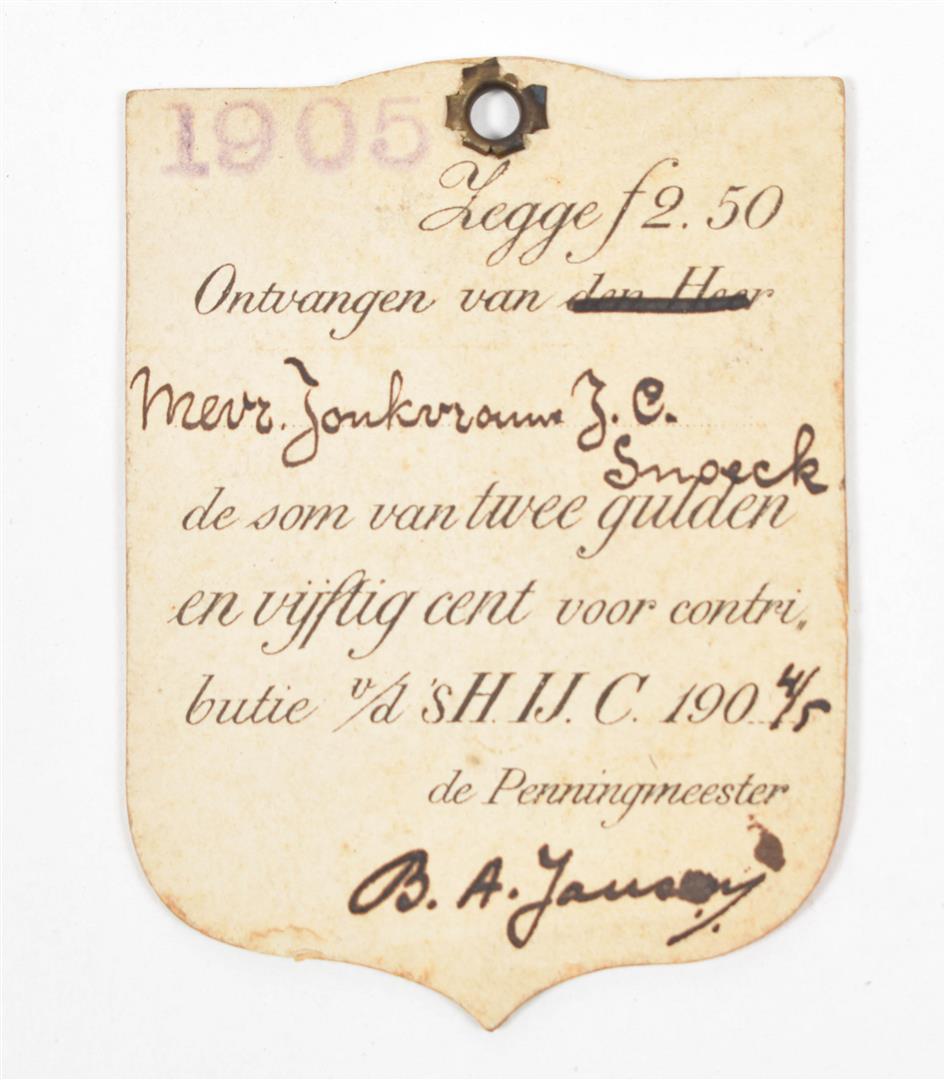 1905
Zegge f 2.50
Ontvangen van den Heer
Mevr. Jonkvrouw J. C.
Snoeck
de som van twee gulden
en vijftig cent voor contri„
butie v/d 'sH. IJ. C. 1904/5
de Penningmeester
B. A. Jansen